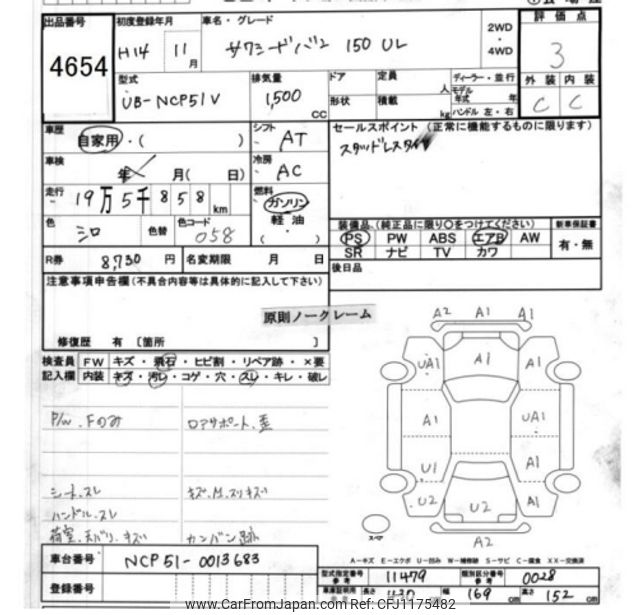 出品番号 初度登録年月 車名・グレード 2WD・4WD 評価点
4654 H14 11月 サクシードバン 150 UL 3
型式 排気量 ドア 定員 人 ディーラー・並行 外装 内装
UB-NCP51V 1,500 CC 形状 積載 kg モデル年式 年 ハンドル 左・右 C C
車歴 自家用・( ) シフト AT セールスポイント (正常に機能するものに限ります)
車検 年 月( 日) 冷房 AC スタッドレスタイヤ
走行 19万5千858 km 燃料 ガソリン 軽油 ( )
色 シロ 色替 色コード 058
装備品 (純正品に限り○をつけてください) 新車保証書
PS PW ABS エアB AW 有・無
SR ナビ TV カワ
R券 8,730 円 名変期限 月 日 後日品
注意事項申告欄 (不具合内容等は具体的に記入して下さい)
原則ノークレーム
修復歴 有 [箇所 ]
検査員 FW キズ・飛石・ヒビ割・リペア跡・×要
記入欄 内装 キズ・汚レ・コゲ・穴・スレ・キレ・破レ
P/W.Fのみ ロアサポート.歪
シート.スレ キズ.M.スリキズ
ハンドル.スレ
荷室.天バリ.キズ カンバン跡
A2 A1 A1
UA1 A1 A1
A1 UA1
U1 A1
U2 U2 A1
スペア A2
A-キズ E-エクボ U-凹み W-補修跡 S-サビ C-腐食 XX-交換済
車台番号 NCP51-0013683
登録番号
型式指定番号 参考 11479 類別区分番号 参考 0028
幅 169 cm 高さ 152 cm
www.CarFromJapan.com Ref: CFJ1175482